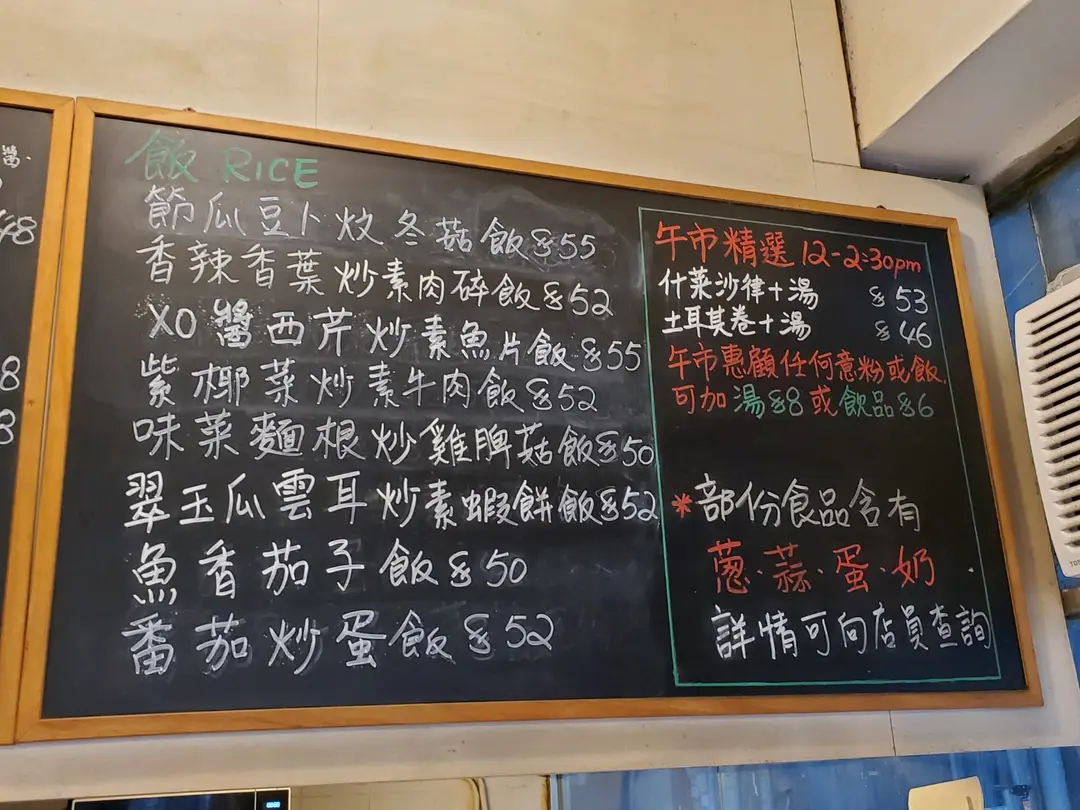 醬.
48
8
8
飯 RICE
節瓜豆卜炆冬菇飯 $55
香辣香葉炒素肉碎飯 $52
XO 醬西芹炒素魚片飯 $55
紫椰菜炒素牛肉飯 $52
味菜麵根炒雞脾菇飯 $50
翠玉瓜雲耳炒素蝦餅飯 $52
魚香茄子飯 $50
番茄炒蛋飯 $52
午市精選 12-2:30pm
什菜沙律+湯 $53
土耳其卷+湯 $46
午市惠顧任何意粉或飯,
可加湯$8或飲品$6
*部份食品含有
蔥.蒜.蛋.奶
詳情可向店員查詢